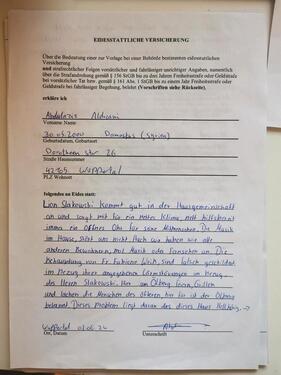 EIDESSTATTLICHE VERSICHERUNG
Über die Bedeutung einer zur Vorlage bei einer Behörde bestimmten eidesstattlichen
Versicherung
und strafrechtlicher Folgen vorsätzlicher und fahrlässiger unrichtiger Angaben, namentlich
über die Strafandrohung gemäß § 156 StGB bis zu drei Jahren Freiheitsstrafe oder Geldstrafe
bei vorsätzlicher Tat bzw. gemäß § 161 Abs. 1 StGB bis zu einem Jahr Freiheitsstrafe oder
Geldstrafe bei fahrlässiger Begehung, belehrt (Vorschriften siehe Rückseite),
erkläre ich
Abdulaziz
Vorname Name
30.05.2000 Damaskus (Syrien)
Geburtsdatum, Geburtsort
Dorotheen str 26
Straße Hausnummer
42105 Wuppertal
PLZ Wohnort
folgendes an Eides statt:
Lion Slakowski kommt gut in der Hausgemeinschaft
an und sorgt mit für ein nettes Klima, nett hilfsbereit
immer ein offnes Ohr für seine Mitmenschen. Die Musik
im Hause, stört uns nicht. Auch wir haben wie alle
anderen Bewohnner, mal Musik oder Fernseher an. Die
Behauptung von Fr. Fabiene sind falsch geschildert
im bezug ihrer angegebenen Lärmstörungen in bezug
des Herrn Slakowski. Hier am Ölberg feiern, Grillen
und lachen die Menschen des öfteren hier für ist der Ölberg
bekannt. Dieses Problem liegt daran das dieses Haus Hellhörig
Wuppertal 02.06.24
Ort, Datum Unterschrift